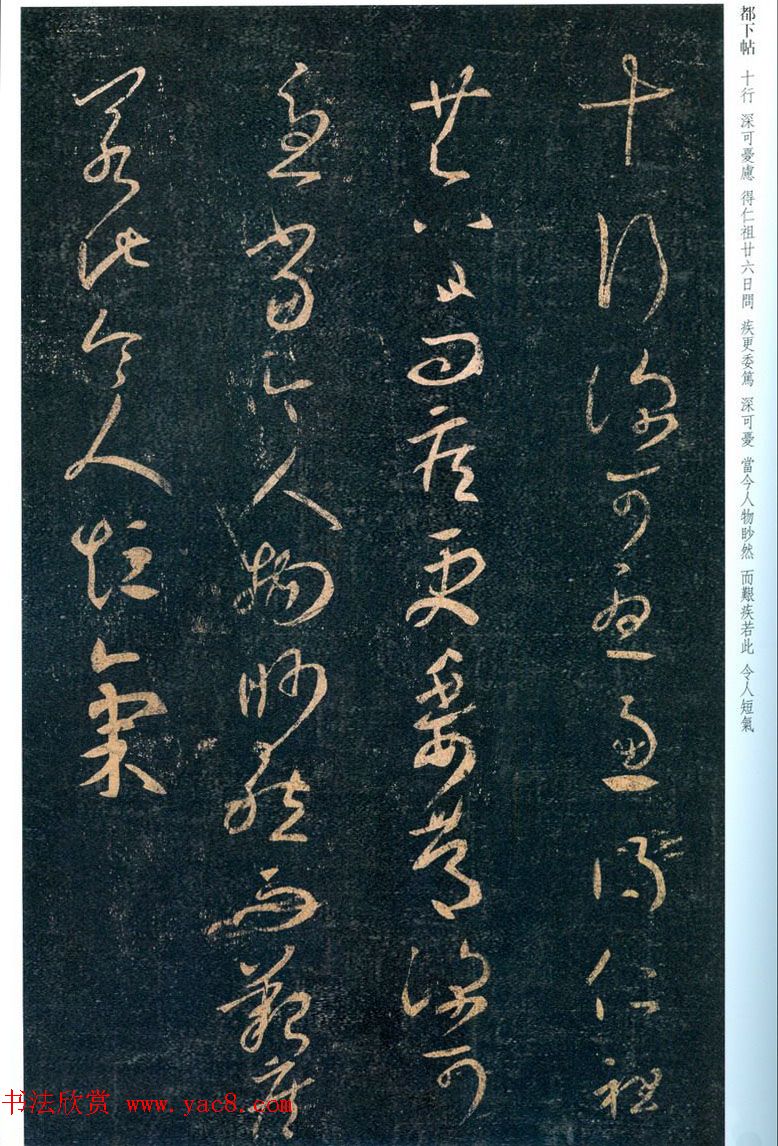 都下帖 十行 深可憂慮 得仁祖廿六日問 疾更委篤 深可憂 當今人物眇然 而艱疾若此 令人短氣
十行深可憂慮得仁祖
廿六日問疾更委篤深可
憂當今人物眇然而艱疾
若此令人短氣
书法欣赏 www.yac8.com